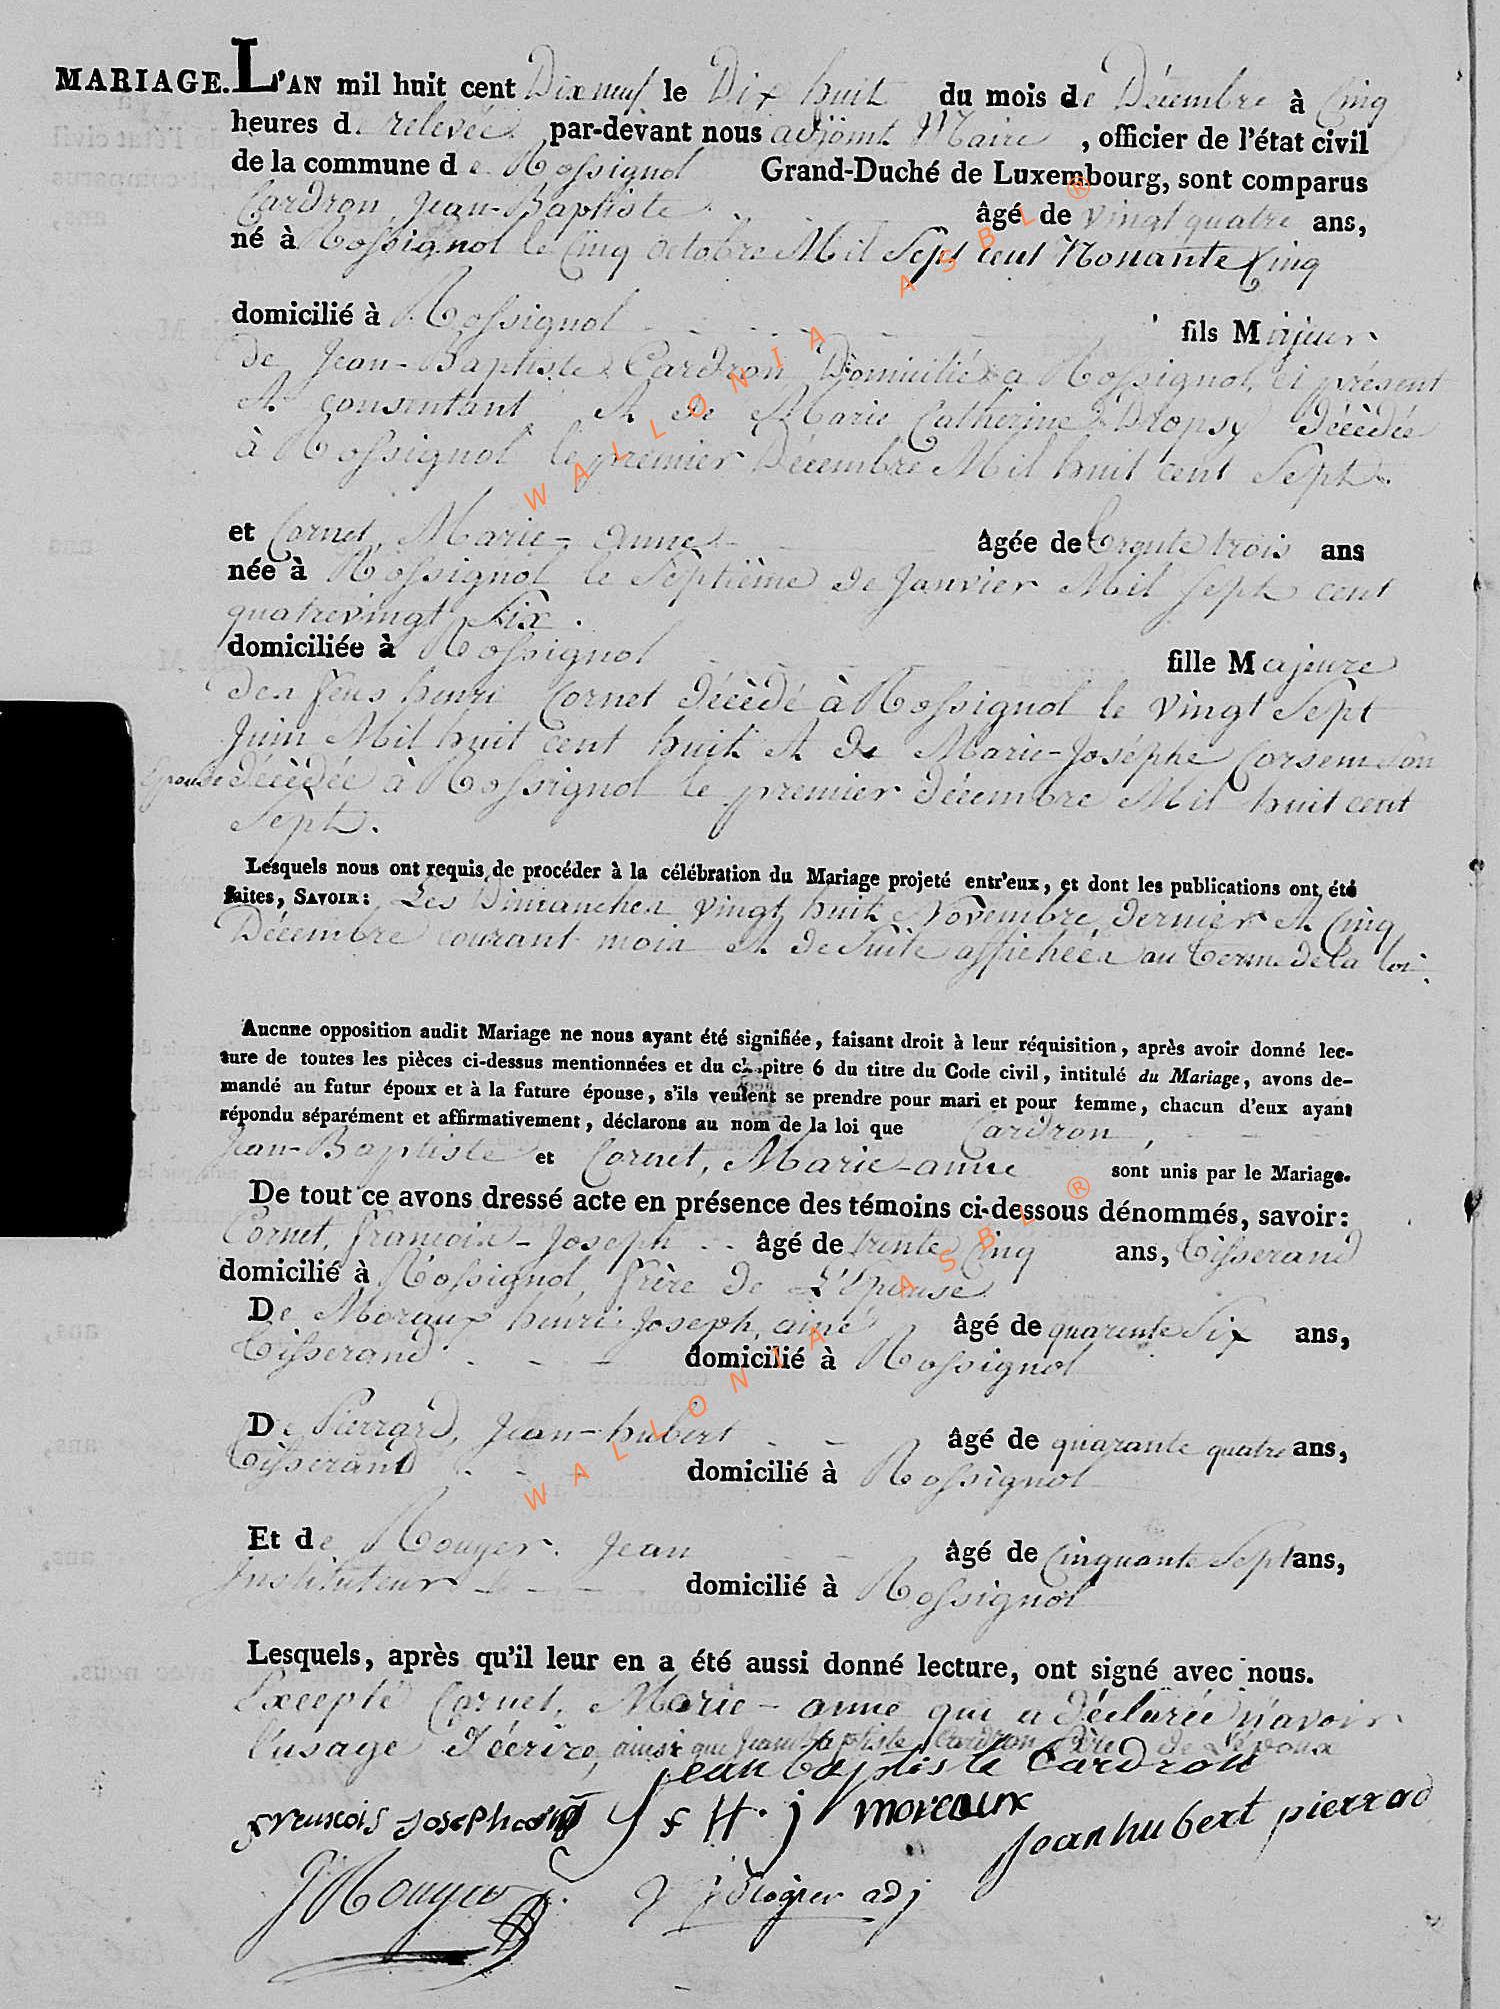 MARIAGE. L'AN mil huit cent Dix neuf le Dix huit du mois de Décembre à Cinq
heures de relevée par-devant nous adjoint Maire , officier de l'état civil
de la commune de Rossignol Grand-Duché de Luxembourg, sont comparus
Cardron, Jean-Baptiste âgé de vingt quatre ans,
né à Rossignol le Cinq octobre Mil Sept cent Nonante Cinq
domicilié à Rossignol fils Majeur
de Jean-Baptiste Cardron Domicilié a Rossignol, ci présent
et consentant et de Marie Catherine Dropsy décèdée
à Rossignol le premier Décembre Mil huit cent Sept.
et Cornet, Marie-anne âgée de trente trois ans
née à Rossignol le Septième de Janvier Mil Sept cent
quatrevingt Six.
domiciliée à Rossignol fille Majeure
des feus henri Cornet décèdé à Rossignol le vingt Sept
Juin Mil huit cent huit et de Marie-Joséphe Corsem son
épouse décèdée à Rossignol le premier décembre Mil huit cent
Sept.
Lesquels nous ont requis de procéder à la célébration du Mariage projeté entr'eux, et dont les publications ont été
faites, SAVOIR: Les Dimanches vingt huit Novembre dernier et Cinq
Décembre courant mois et de Suite affichées au terme de la loi.
Aucune opposition audit Mariage ne nous ayant été signifiée, faisant droit à leur réquisition, après avoir donné lec-
ture de toutes les pièces ci-dessus mentionnées et du chapitre 6 du titre du Code civil, intitulé du Mariage, avons de-
mandé au futur époux et à la future épouse, s'ils veulent se prendre pour mari et pour femme, chacun d'eux ayant
répondu séparément et affirmativement, déclarons au nom de la loi que Cardron,
Jean-Baptiste et Cornet, Marie-anne sont unis par le Mariage.
De tout ce avons dressé acte en présence des témoins ci-dessous dénommés, savoir:
Cornet, françois-Joseph âgé de trente Cinq ans, Tisserand
domicilié à Rossignol, frère de L'Epouse
De Moraux henri Joseph, ainé âgé de quarente Six ans,
Tisserand domicilié à Rossignol
De Pierrard, Jean-hubert âgé de quarante quatre ans,
Tisserand domicilié à Rossignol
Et de Rouyer Jean âgé de Cinquante Sept ans,
Instituteur domicilié à Rossignol
Lesquels, après qu'il leur en a été aussi donné lecture, ont signé avec nous.
Excepté Cornet, Marie-anne qui a déclarée n'avoir
l'usage d'écrire, ainsi que Jean Baptiste Cardron Père de L'Epoux
jean baptiste Cardron
francois joseph H. j moreaux
jean hubert pierrad
J Rouyer adj
WALLONIA ASBL ®
WALLONIA ASBL ®